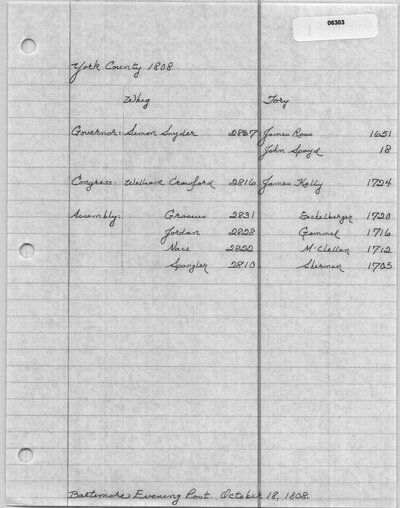 06303
York County 1808
Whig Tory
Governor: Simon Snyder 2867 James Ross 1651
John Spayd 18
Congress: William Crawford 2816 James Kelly 1724
Assembly: Grasius 2831 Eichelberger 1720
Jordan 2828 Gemmel 1716
Nace 2822 M'Clellan 1712
Spangler 2810 Sherman 1705
Baltimore Evening Post. October 18, 1808.